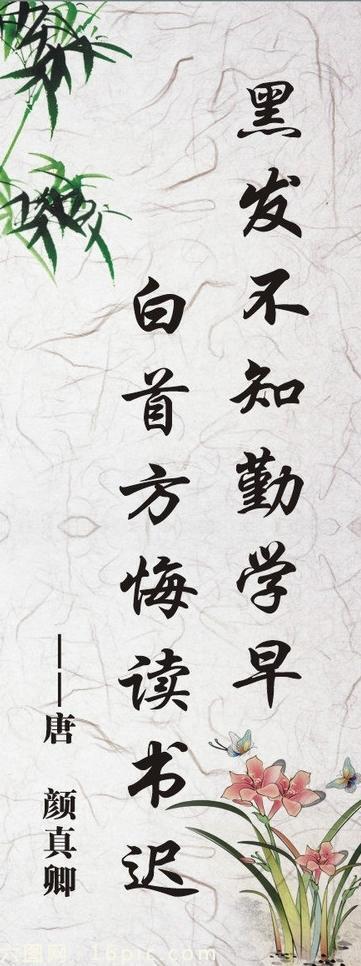 黑发不知勤学早
白首方悔读书迟
——唐 颜真卿
六图网·16pic.com